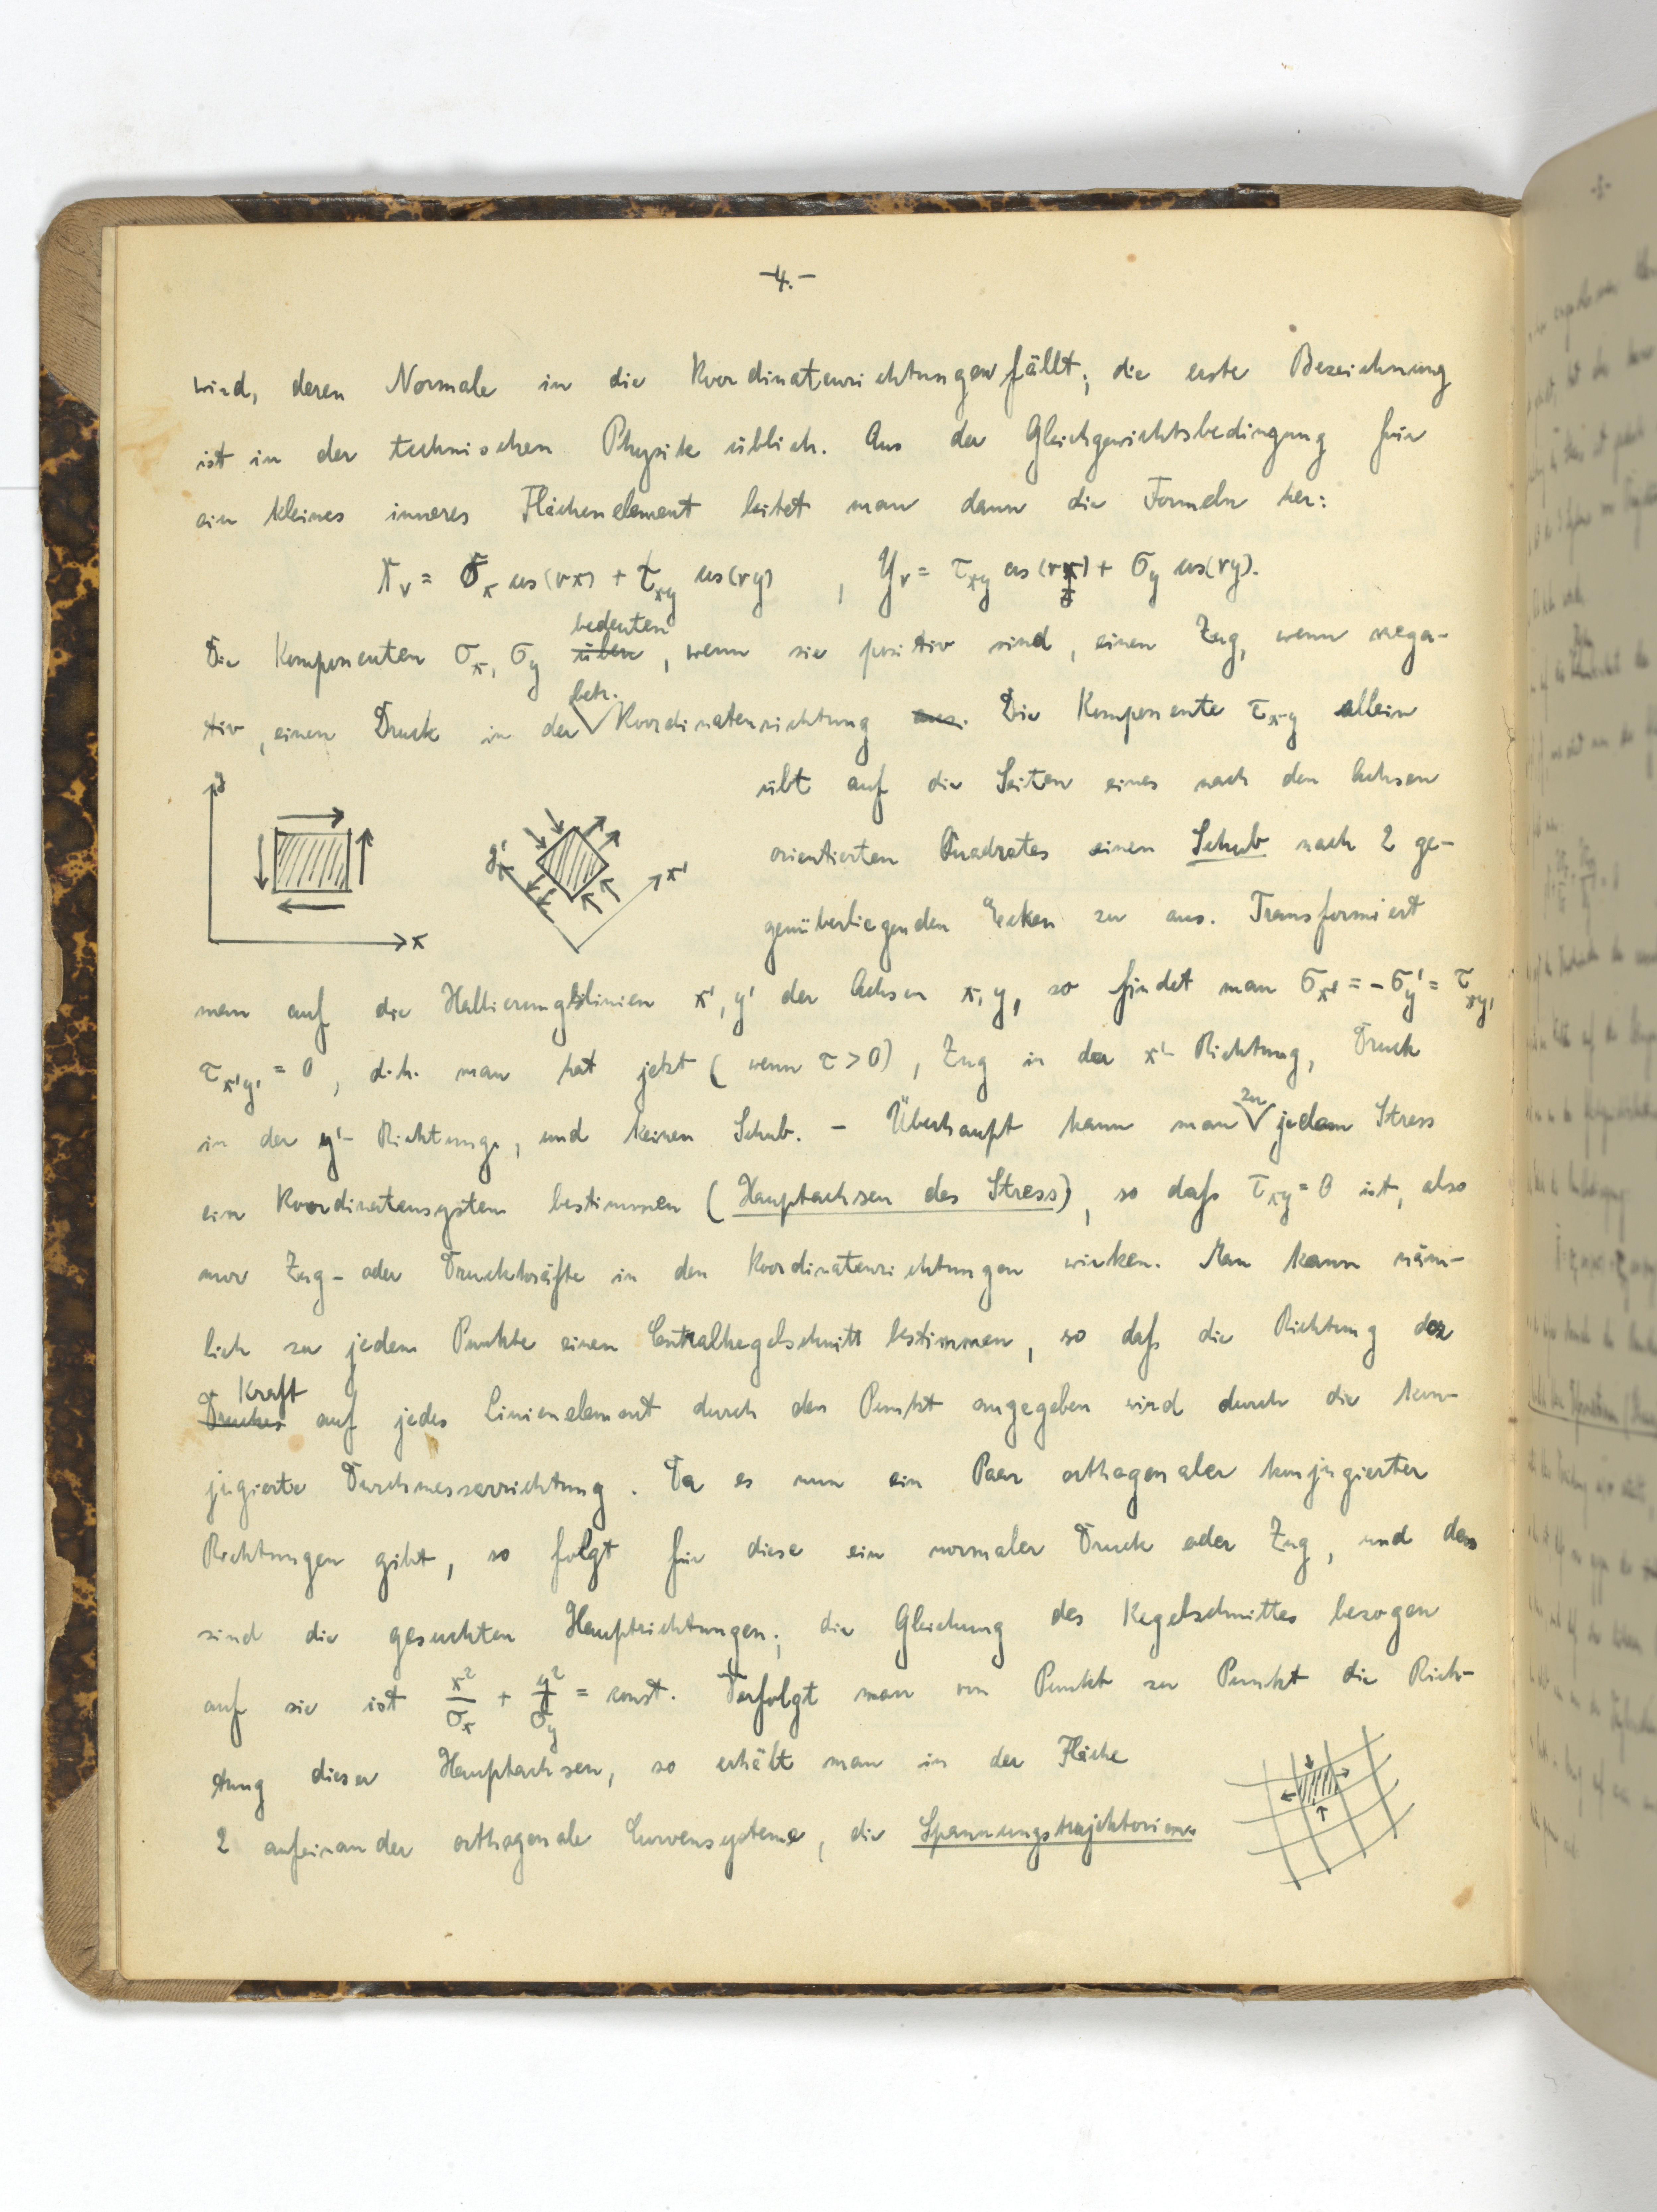 -4.-
wird, deren Normale in die Koordinatenrichtungen fällt; die erste Bezeichnung
ist in der technischen Physik üblich. Aus der Gleichgewichtsbedingung für
ein kleines inneres Flächenelement leitet man dann die Formeln her:
X_ν = σ_x cos(νx) + τ_xy cos(νy) , Y_ν = τ_xy cos(νx) + σ_y cos(νy).
bedeuten
Die Komponenten σ_x, σ_y üben, wenn sie positiv sind, einen Zug, wenn nega-
betr.
tiv, einen Druck in der Koordinatenrichtung aus. Die Komponente τ_xy allein
übt auf die Seiten eines nach den Achsen
orientierten Quadrates einen Schub nach 2 ge-
genüberliegenden Ecken zu aus. Transformiert
y
x
y'
x'
man auf die Halbierungslinien x', y' der Achsen x, y, so findet man σ_x' = -σ_y' = τ_xy,
τ_x'y' = 0, d.h. man hat jetzt (wenn τ > 0), Zug in der x'- Richtung, Druck
zu
in der y'- Richtung, und keinen Schub. - Überhaupt kann man jedem Stress
ein Koordinatensystem bestimmen (Hauptachsen des Stress), so daſs τ_xy = 0 ist, also
nur Zug- oder Druckkräfte in den Koordinatenrichtungen wirken. Man kann näm-
lich zu jedem Punkte einen Centralkegelschnitt bestimmen, so daſs die Richtung der
Kraft
Druckes auf jedes Linienelement durch den Punkt angegeben wird durch die kon-
jugierte Durchmesserrichtung. Da es nun ein Paar orthogonaler konjugierter
Richtungen gibt, so folgt für diese ein normaler Druck oder Zug, und das
sind die gesuchten Hauptrichtungen; die Gleichung des Kegelschnittes bezogen
auf sie ist x²/σ_x + y²/σ_y = const. Verfolgt man von Punkt zu Punkt die Rich-
tung dieser Hauptachsen, so erhält man in der Fläche
2 aufeinander orthogonale Curvensysteme, die Spannungstrajektorien